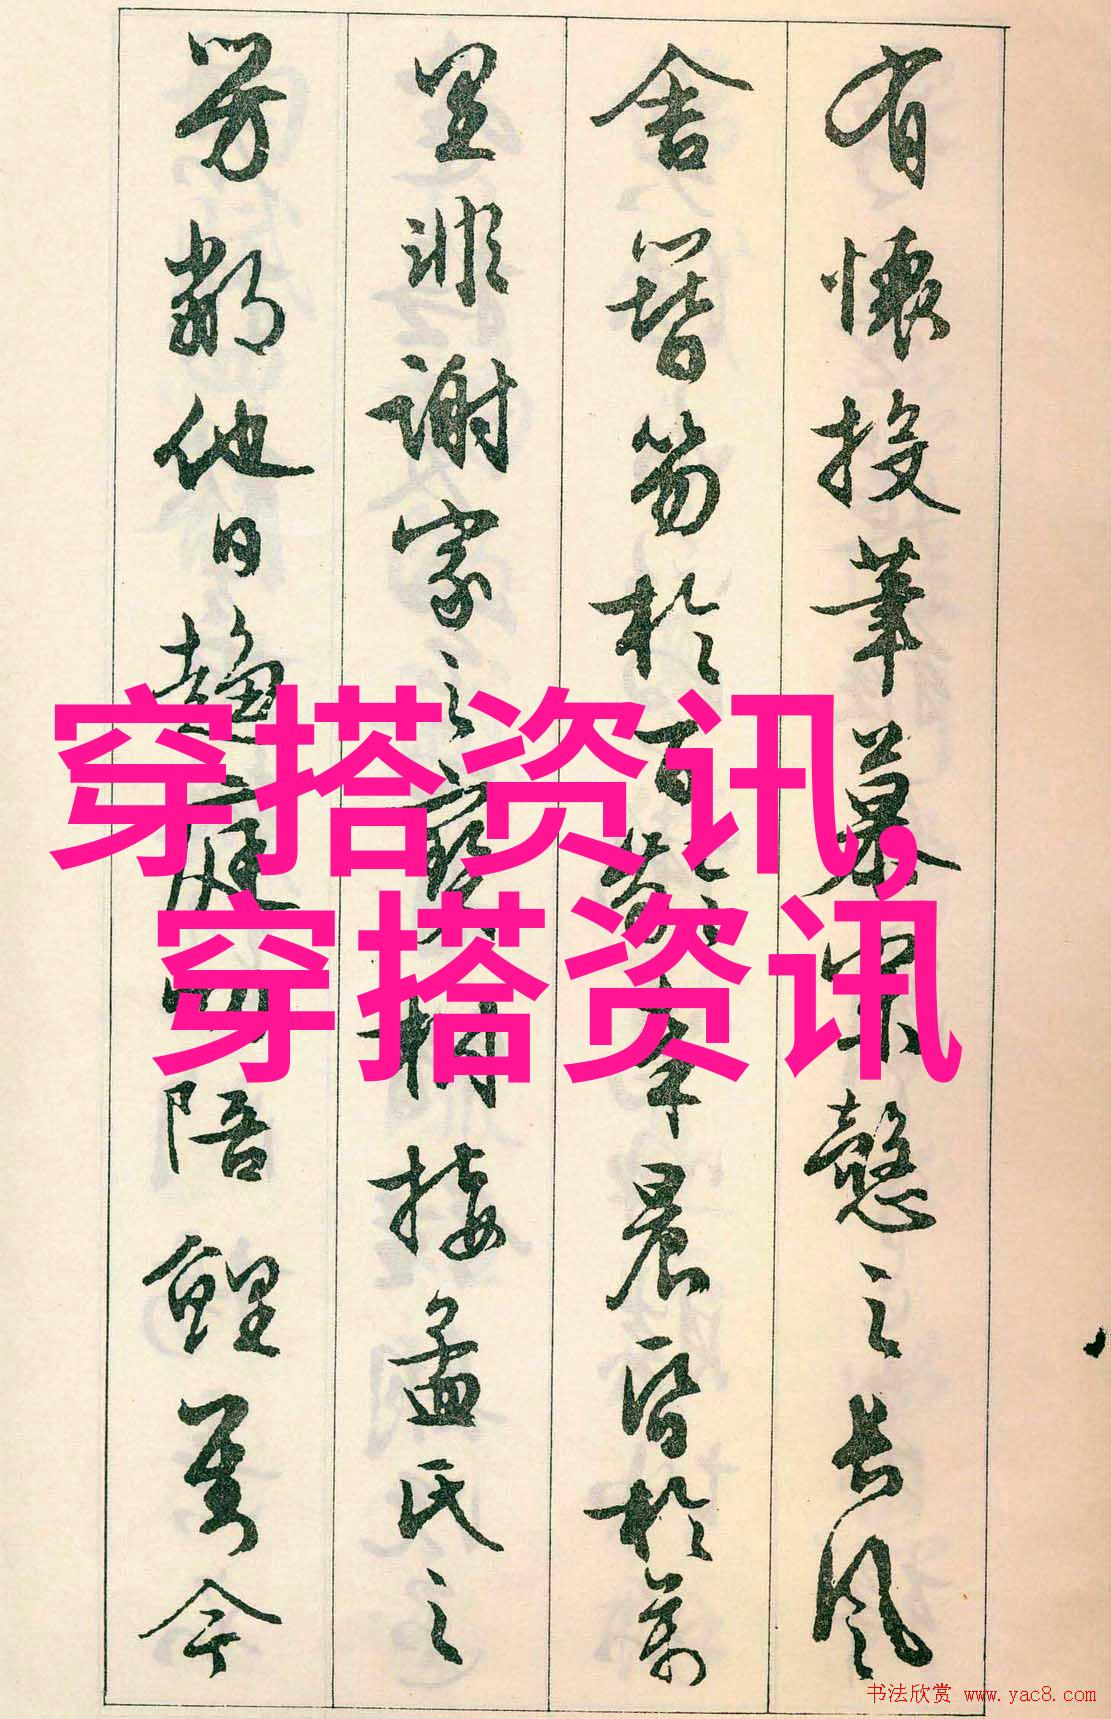 有懷投筆慕宗慤之長風
舍簪笏於百齡奉晨昏於萬
里非謝家之寶樹接孟氏之
芳鄰他日趨庭叨陪鯉對今
穿搭资讯,
穿搭资讯
书法欣赏 www.yac8.com